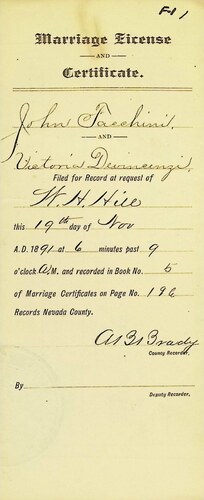 Marriage License
AND
Certificate.
John Facchini,
AND
Victoria Devincenzi.
Filed for Record at request of
W. H. Hill
this 19th day of Nov
A.D. 1891 at 6 minutes past 9
o'clock A.M. and recorded in Book No. 5
of Marriage Certificates on Page No. 196
Records Nevada County.
Brady
County Recorder.
By
Deputy Recorder.